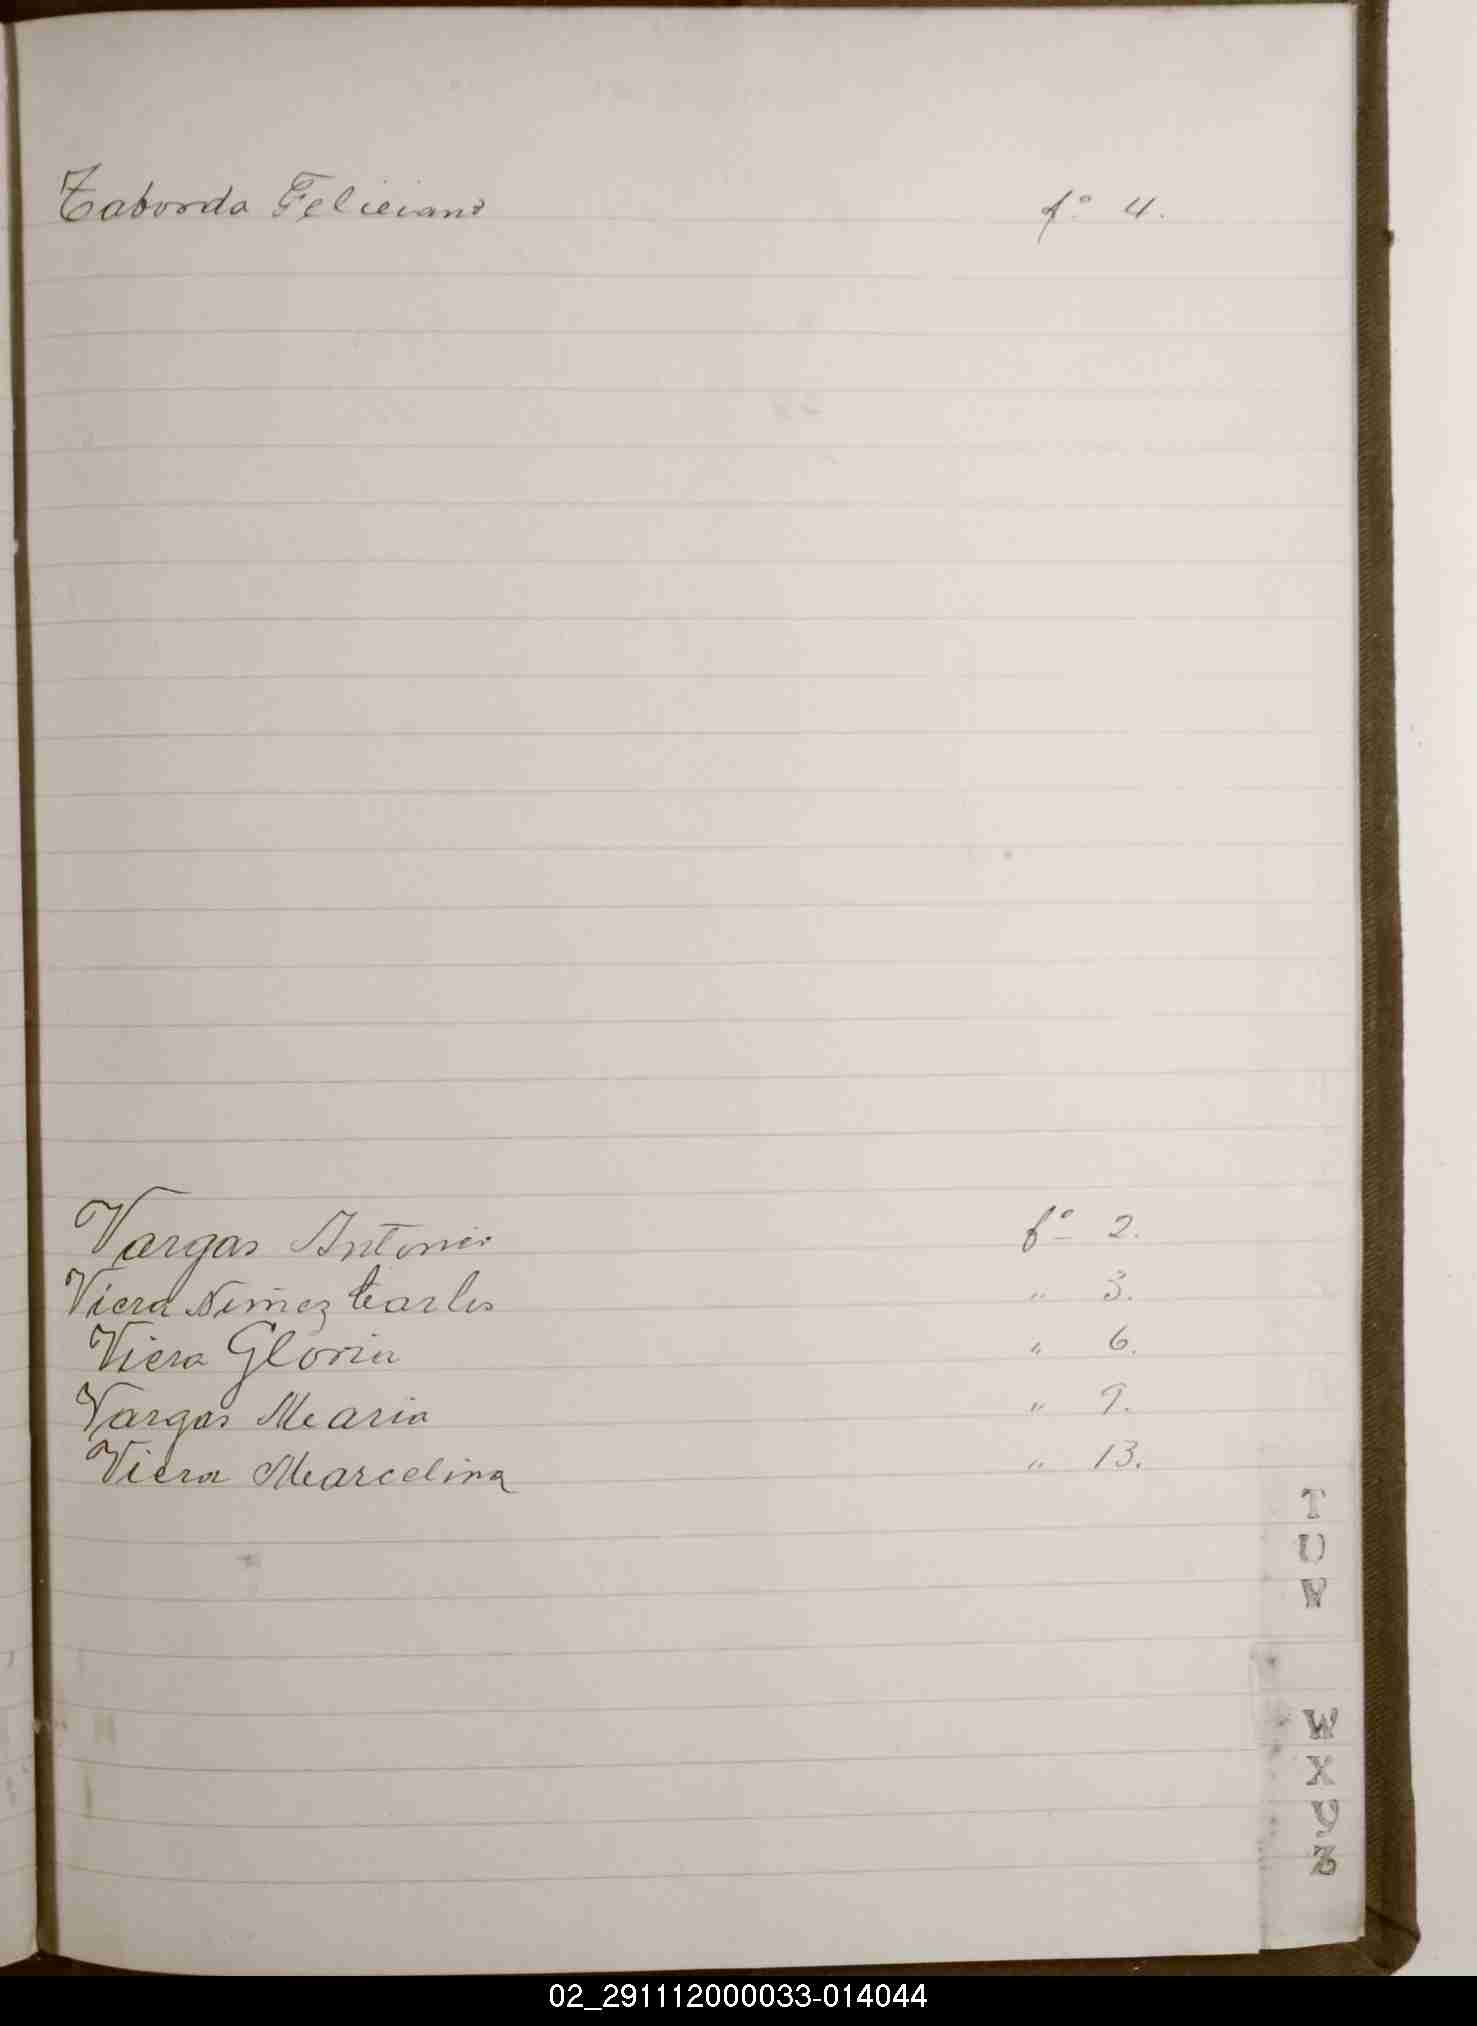 Taborda Feliciano fº 4.
Vargas Antonio fº 2.
Viera Nuñez Carlos " 3.
Viera Gloria " 6.
Vargas Maria " 9.
Viera Marcelina " 13.
T
U
V
W
X
Y
Z
02_291112000033-014044